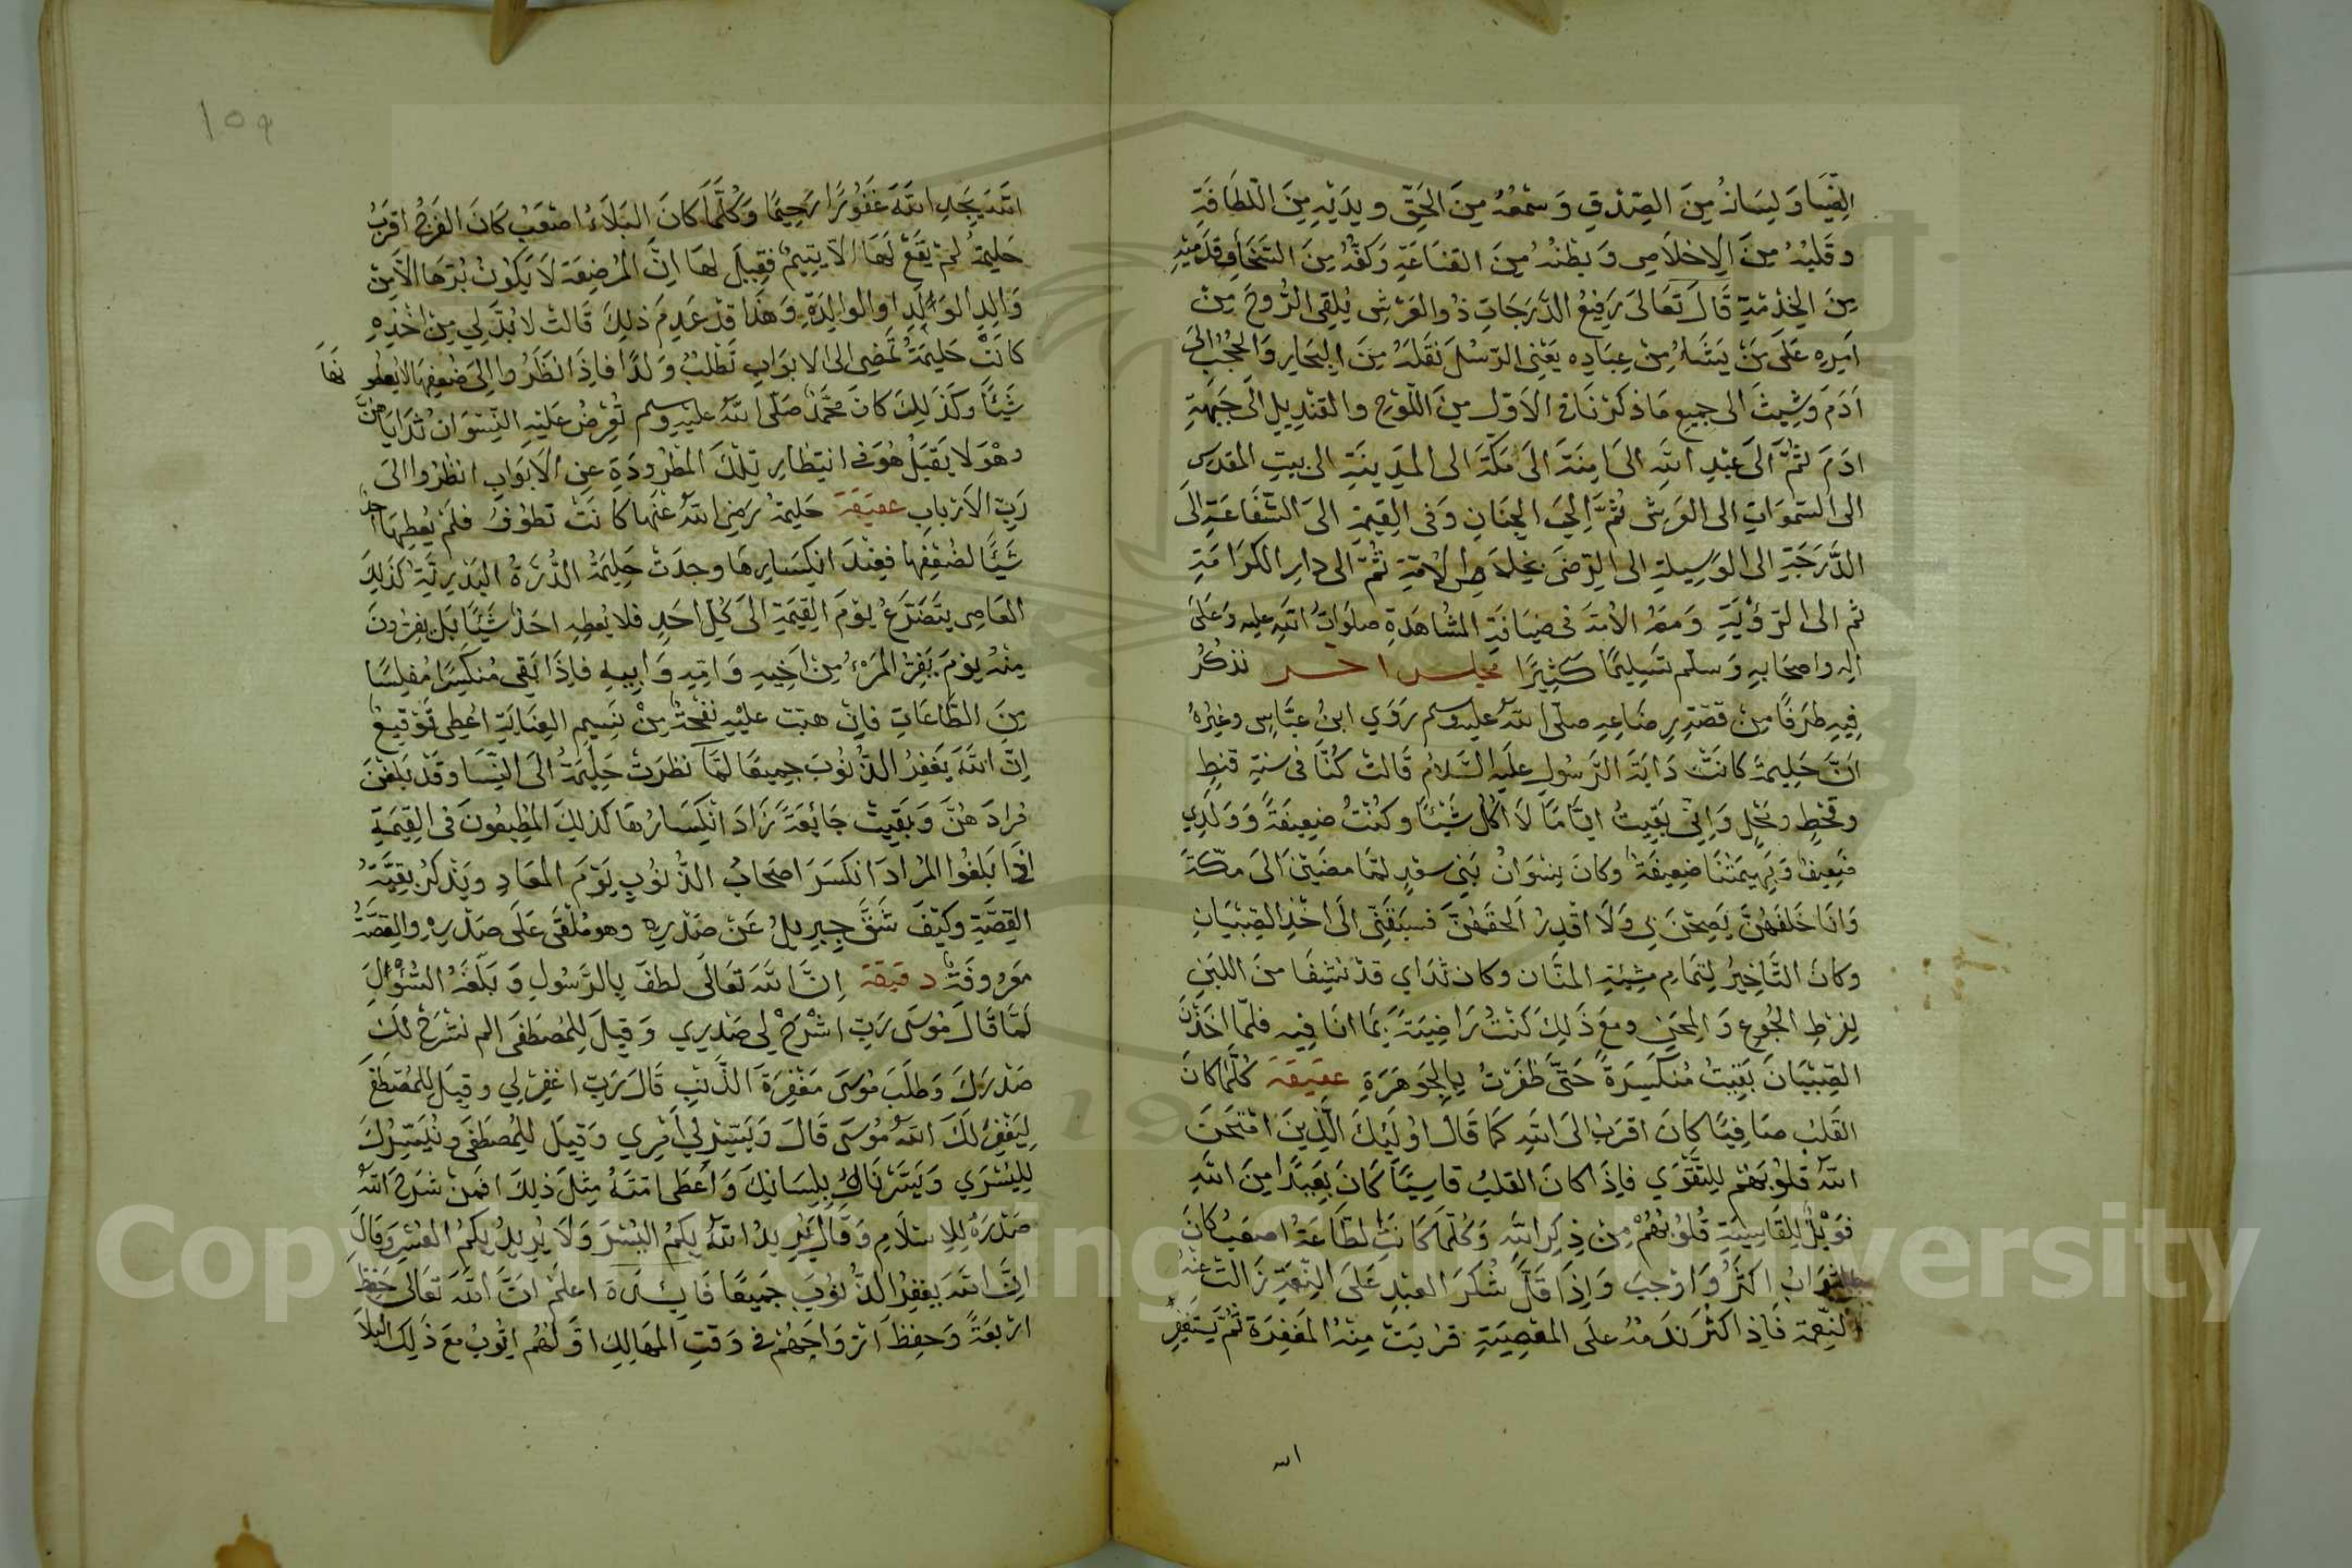 الضيا ولسانه من الصدق وسمعه من الحق ويديه من اللطافة
وقلبه من الاخلاص وبطنه من القناعة وكفه من السخا وقدميه
من الخدمة قال تعالى رفيع الدرجات ذو العرش يلقى الروح من
امره على من يشاء من عباده يعنى الرسل نقله من البحار والحجب الى
ادم وشيث الى جميع ما ذكرناه الاول من اللوح والقنديل الى جبهة
ادم ثم الى عبد الله الى امنة الى مكة الى المدينة الى بيت المقدس
الى السموات الى العرش ثم الى الجنان وفى القيمة الى الشفاعة الى
الدرجة الى الوسيلة الى الرضى بخلاص الامة ثم الى دار الكرامة
ثم الى الرؤية ومعه الامة فى ضيافة المشاهدة صلوات الله عليه وعلى
اله واصحابه وسلم تسليما كثيرا مجلس اخر نذكر
فيه طرفا من قصة رضاعه صلى الله عليه وسلم روي ابن عباس وغيره
ان حليمة كانت داية الرسول عليه السلام قالت كنا فى سنة قنط
وقحط ومحل وانى بقيت اياما لا اكل شيئا وكنت ضعيفة وولدي
ضعيف وبهيمتنا ضعيفة وكان نسوان بني سعد لما مضين الى مكة
وانا خلفهن يصحن بى ولا اقدر الحقهن فسبقنى الى اخذ الصبيان
وكان التاخير لتمام مشية المنان وكان ثداي قد نشفا من اللبن
لفرط الجوع والمحن ومع ذلك كنت راضية بما انا فيه فلما اخذن
الصبيان بقيت منكسرة حتى ظفرت بالجوهرة عقيقة كلما كان
القلب صافيا كان اقرب الى الله كما قال اولئك الذين امتحن
الله قلوبهم للتقوي فاذا كان القلب قاسيا كان بعيدا من الله
فويل للقاسية قلوبهم من ذكر الله وكلما كانت الطاعة اصعب كان
الثواب اكثر واوجب واذا قل شكر العبد على النعمة زالت عنه
النعمة فاذا كثر ندمه على المعصية قربت منه المغفرة ثم يستغفر
الله
١٥٩
الله يجد الله غفورا رحيما وكلما كان البلاء اصعب كان الفرج اقرب
حليمة لم يقع لها الا يتيم فقيل لها ان المرضعة لا يكون برها الا من
والد الولد او الوالدة وهذا قد عدم ذلك قالت لا بد لي من اخذه
كانت حليمة تمضى الى الابواب تطلب ولدا فاذا نظروا الى ضعفها لا يعطونها
شيئا وكذلك كان محمد صلى الله عليه وسلم تعرض عليه النسوان ثداياهن
وهو لا يقبل هو فى انتظار تلك المطرودة عن الابواب انظروا الى
رب الارباب عقيقة حليمة رضى الله عنها كانت تطوف فلم يعطها احد
شيئا لضعفها فعند انكسارها وجدت حليمة الدرة البديرية كذلك
العاصى يتضرع يوم القيمة الى كل احد فلا يعطه احد شيئا بل يفرون
منه يوم يفر المرء من اخيه وامه وابيه فاذا بقى منكسرا مفلسا
من الطاعات فان هبت عليه نفحة من نسيم العناية اعطى توقيع
ان الله يغفر الذنوب جميعا لما نظرت حليمة الى النسا وقد بلغن
مرادهن وبقيت جائعة زاد انكسارها كذلك المطيعون فى القيمة
اذا بلغوا المراد انكسر اصحاب الذنوب يوم المعاد ويذكر بقية
القصة وكيف شق جبريل عن صدره وهو ملقى على صدره والقصة
معروفة دقيقة ان الله تعالى لطف بالرسول وبلغه السؤال
لما قال موسى رب اشرح لي صدري وقيل للمصطفى الم نشرح لك
صدرك وطلب موسى مغفرة الذنب قال رب اغفر لي وقيل للمصطفى
ليغفر لك الله موسى قال ويسر لي امري وقيل للمصطفى ونيسرك
لليسري ويسرناه بلسانك واعطى امته مثل ذلك افمن شرح الله
صدره للاسلام وقال يريد الله بكم اليسر ولا يريد بكم العسر وقال
ان الله يغفر الذنوب جميعا فائدة اعلم ان الله تعالى حفظ
اربعة وحفظ ازواجهم فى وقت المهالك اولهم ايوب مع ذلك البلا